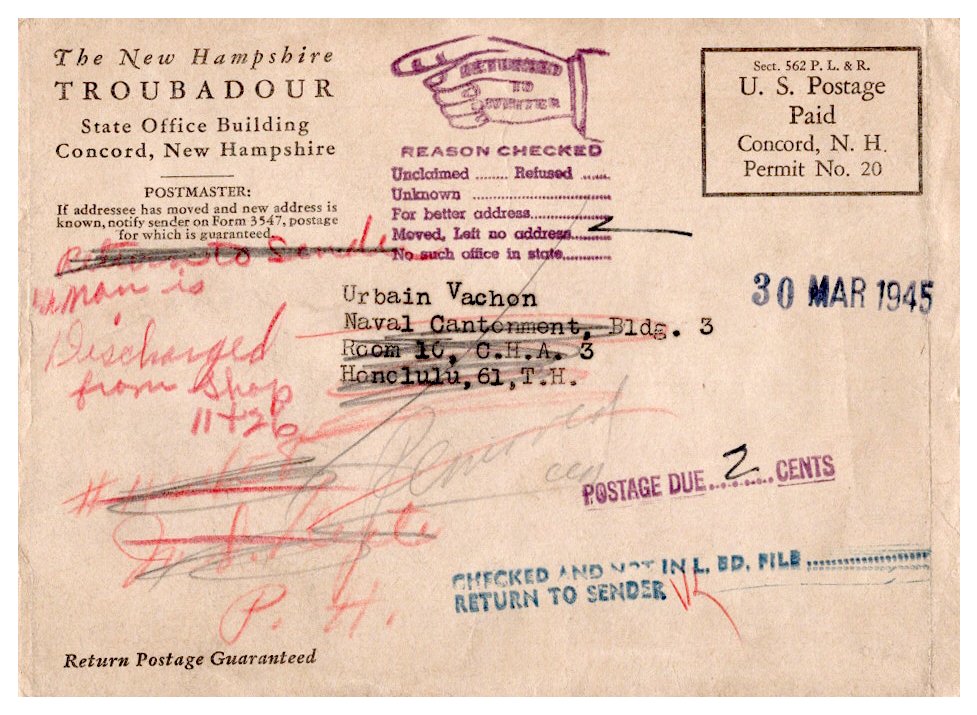 The New Hampshire
TROUBADOUR
State Office Building
Concord, New Hampshire
POSTMASTER:
If addressee has moved and new address is
known, notify sender on Form 3547, postage
for which is guaranteed.
RETURNED
TO
WRITER
REASON CHECKED
Unclaimed ........ Refused ......
Unknown ..............................
For better address....................
Moved, Left no address..........
No such office in state............
Sect. 562 P. L. & R.
U. S. Postage
Paid
Concord, N. H.
Permit No. 20
Return to Sender
Man is
Discharged
from Shop
11+26
30 MAR 1945
Urbain Vachon
Naval Cantonment, Bldg. 3
Room 10, C.H.A. 3
Honclulu,61,T.H.
Removed
POSTAGE DUE..2..CENTS
P. H.
CHECKED AND NOT IN L. ED. FILE ....................
RETURN TO SENDER
Return Postage Guaranteed